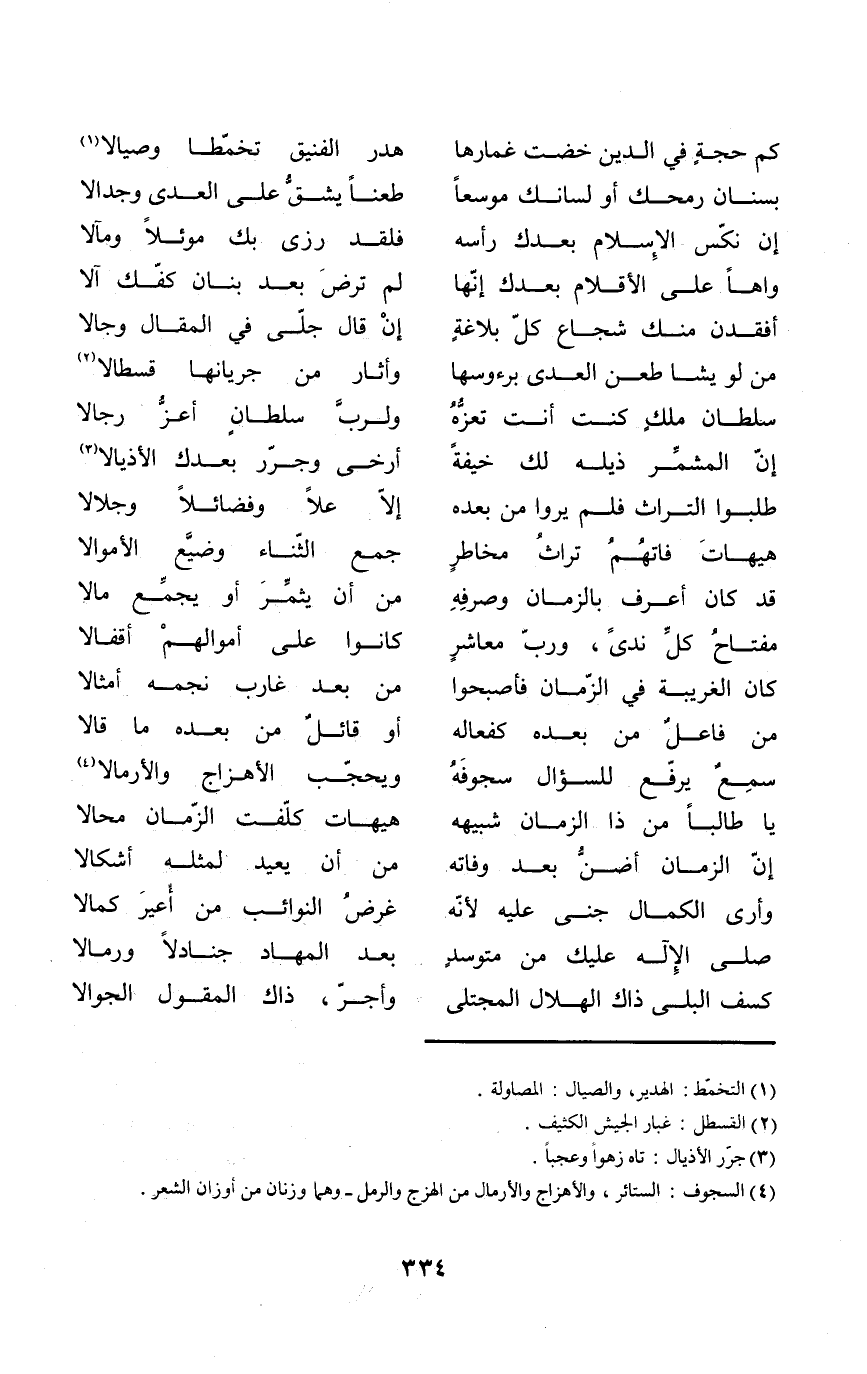 كم حجةٍ في الدين خضت غمارها هدر الفنيق تخمّطا وصيالا(١)
بسنان رمحك أو لسانك موسعاً طعناً يشقُّ على العدى وجدالا
إن نكّس الإِسلام بعدك رأسه فلقد رزى بك موئلاً ومآلا
واهاً على الأقلام بعدك إنّها لم ترضَ بعد بنان كفّك آلا
أفقدن منك شجاع كلّ بلاغةٍ إنْ قال جلّى في المقال وجالا
من لو يشا طعن العدى برءوسها وأثار من جريانها قسطالا(٢)
سلطان ملكٍ كنت أنت تعزُّهُ ولربَّ سلطانٍ أعزُّ رجالا
إنّ المشمِّر ذيله لك خيفةً أرخى وجرّر بعدك الأذيالا(٣)
طلبوا التراث فلم يروا من بعده إلاّ علاً وفضائلاً وجلالا
هيهاتَ فاتهُمُ تراثُ مخاطرٍ جمع الثّناء وضيَّع الأموالا
قد كان أعرف بالزمان وصرفِهِ من أن يثمِّرَ أو يجمِّع مالا
مفتاحُ كلِّ ندىً ، وربّ معاشرٍ كانوا على أموالهمْ أقفالا
كان الغريبة في الزّمان فأصبحوا من بعد غارب نجمه أمثالا
من فاعلٌ من بعده كفعاله أو قائلٌ من بعده ما قالا
سمِعٌ يرفّع للسؤال سجوفَهُ ويحجّب الأهزاج والأرمالا(٤)
يا طالباً من ذا الزمان شبيهه هيهات كلّفت الزّمان محالا
إنّ الزمان أضنُّ بعد وفاته من أن يعيد لمثله أشكالا
وأرى الكمال جنى عليه لأنّه غرضُ النوائب من أُعيرَ كمالا
صلى الإِلٓه عليك من متوسدٍ بعد المهاد جنادلاً ورمالا
كسف البلى ذاك الهلال المجتلى وأجرّ ، ذاك المقول الجوالا
(١) التخمّط : الهدير، والصيال : المصاولة .
(٢) القسطل : غبار الجيش الكثيف .
(٣) جرّر الأذيال : تاه زهواً وعجباً .
(٤) السجوف : الستائر ، والأهزاج والأرمال من الهزج والرمل ـ وهما وزنان من أوزان الشعر .
٣٣٤